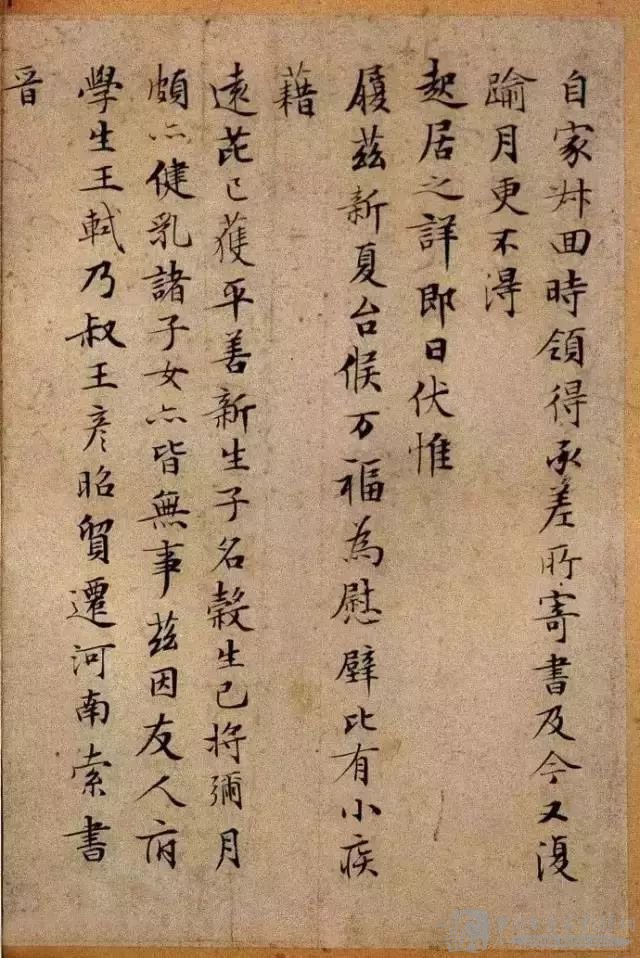 自家姊回時領得承差所寄書及今又復
踰月更不得
起居之詳即日伏惟
履茲新夏台候万福為慰璧比有小疾
藉
遠芘已獲平善新生子名穀生已將彌月
頗亦健乳諸子女亦皆無事茲因友人府
學生王軾乃叔王彥昭貿遷河南索書
晉